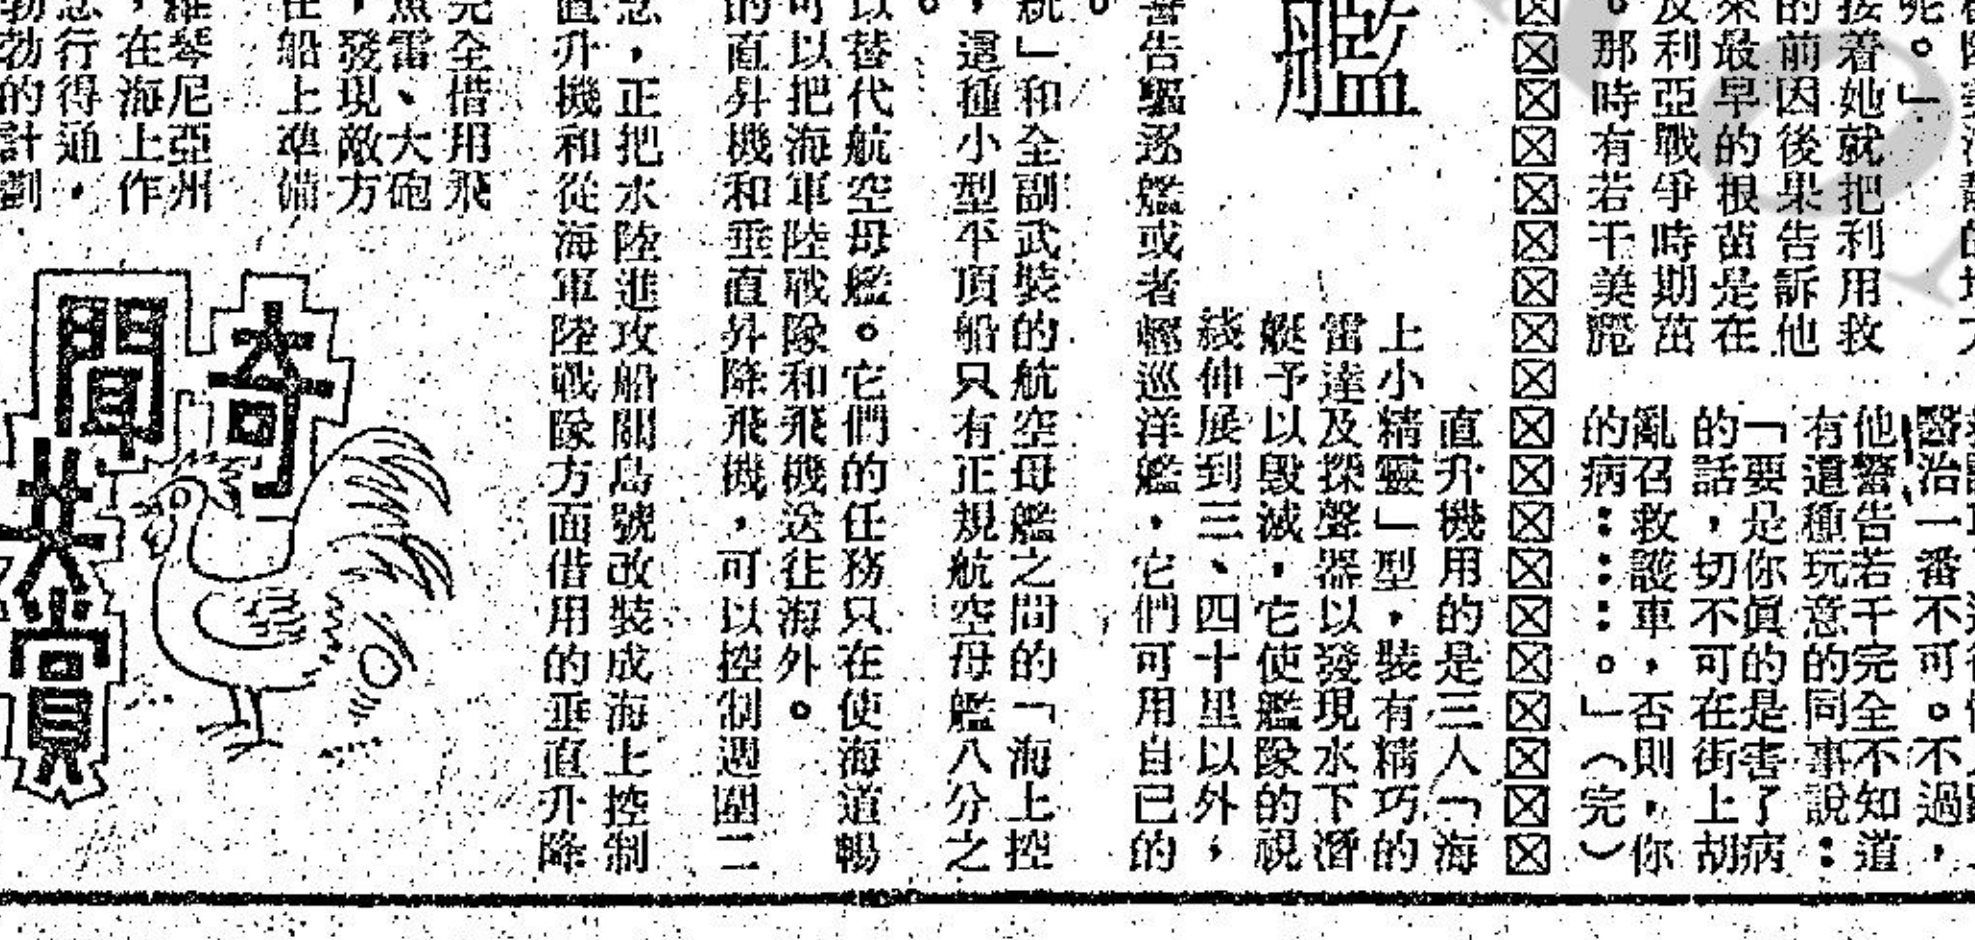 死。」
接着她就把利用救
的前因後果告訴他
來最早的根苗是在
及利亞戰爭時期茁
。那時有若干美麗
醫治一番不可。不過，
他警告若干完全不知道
有這種玩意的同事說：
「要是你眞的是害了病
的話，切不可在街上胡
亂召救護車，否則，你
的病……。」（完）
艦
直升機用的是三人「海
上小精靈」型，裝有精巧的
雷達及探聲器以發現水下潛
艇予以毀滅，它使艦隊的視
綫伸展到三、四十里以外，
警告驅逐艦或者輕巡洋艦，它們可用自已的
。
航」和全副武裝的航空母艦之間的「海上控
，這種小型平頂船只有正規航空母艦八分之
。
以替代航空母艦。它們的任務只在使海道暢
可以把海軍陸戰隊和飛機送往海外。
的直昇機和垂直昇降飛機，可以控制週圍二
念，正把水陸進攻船關島號改裝成海上控制
直升機和從海軍陸戰隊方面借用的垂直升降
完全借用飛
魚雷、大砲
，發現敵方
在船上準備
維琴尼亞州
，在海上作
念行得通，
勃勃的計劃
奇聞共賞